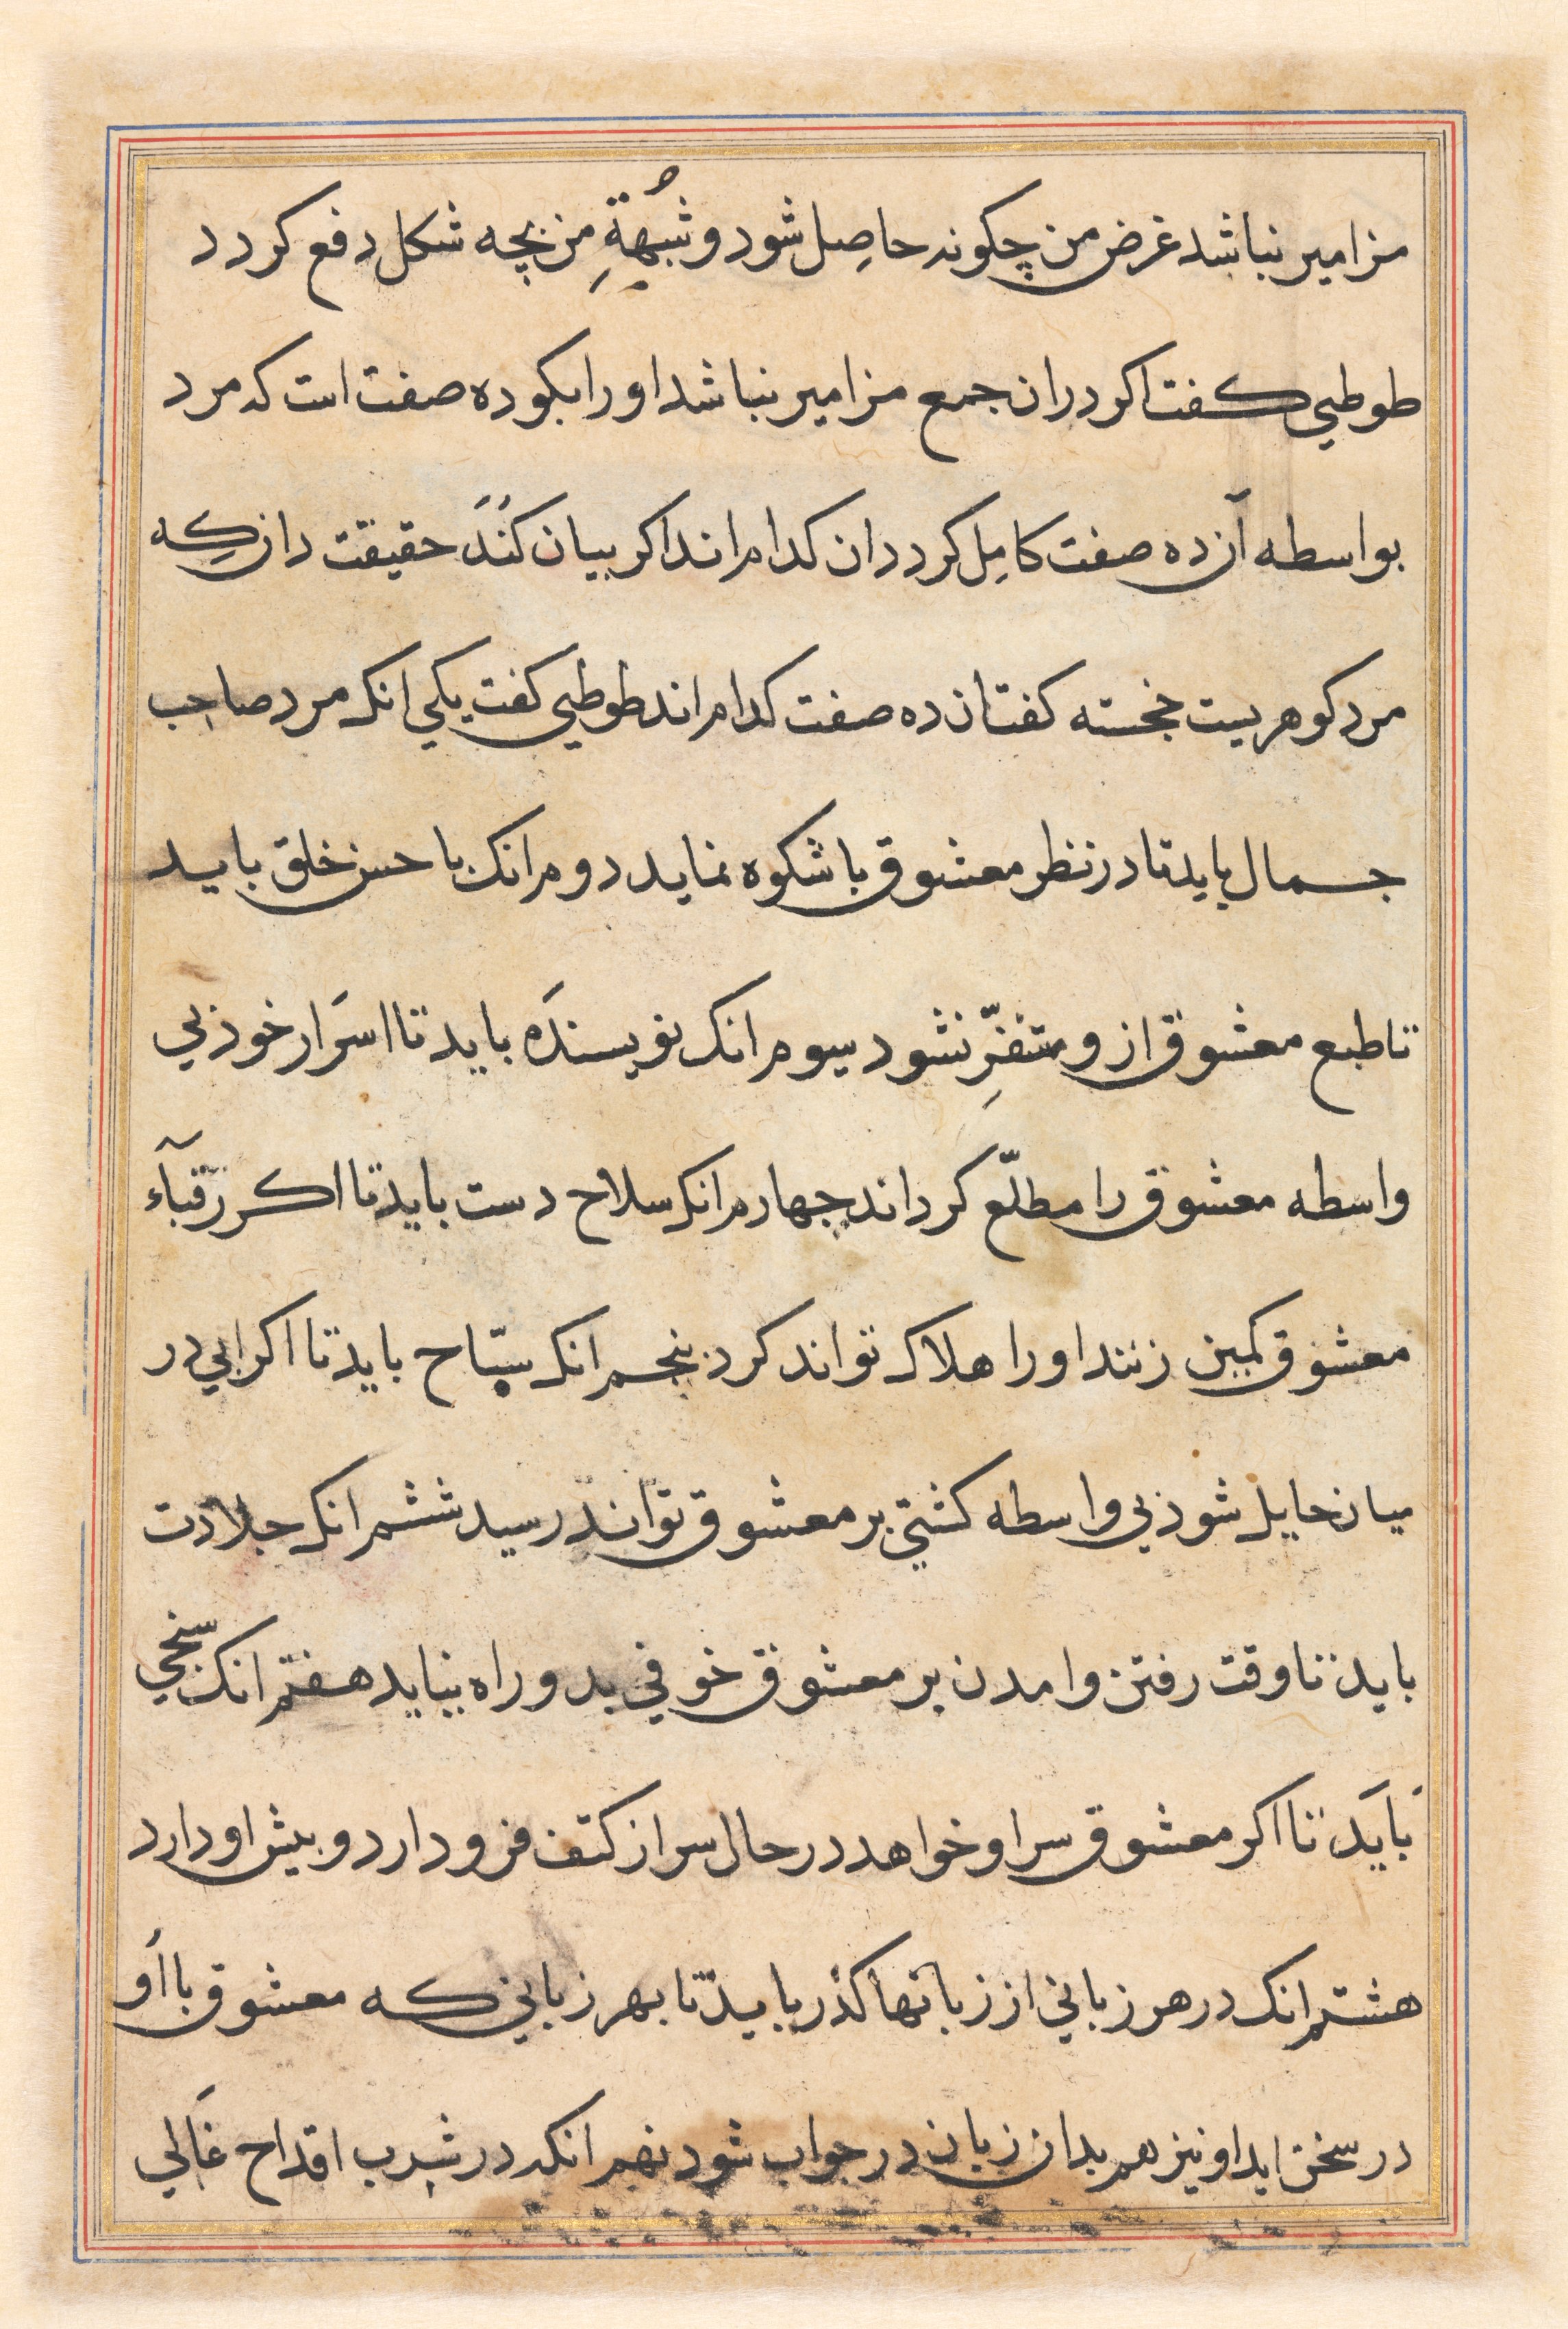 مزامیر نباشد غرض من چکونه حاصِل شود و شُبهةِ من بچه شکل دفع کردد
طوطی کفت اکر دران جمع مزامیر نباشد اورا بکو ده صفت است که مرد
بواسطه آن ده صفت کامِل کردد ان کدام اند اکر بیان کنَد حقیقت دان کِه
مرد کوهریست خجسته کفت ان ده صفت کدام اند طوطی کفت یکی انک مرد صاحب
جمال باید تا در نظر معشوق با شکوه نماید دوم انک با حسن خلق باید
تا طبع معشوق ازو متنفِّر نشود سیوم انک نویسندَه باید تا اسرَار خود بی
واسطه معشوق را مطلّع کرداند چهارم انک سلاح دست باید تا اکر رقبآء
معشوق کمین زنند اورا هلاک تواند کرد پنجم انک سبّاح باید تا اکر ابی در
میان حایل شود بی واسطه کشتی بر معشوق تواند رسید ششم انک جلادت
باید تا وقت رفتن و امدن بر معشوق خوفی بدو راه نیاید هفتم انک سخی
بَایَد تا اکر معشوق سر او خواهد در حال سر از کتف فرود ارد و پیش او دارد
هشتم انک در هر زبانی از زبانها کذر باید تا بهر زبانی که معشوق با اَو
در سخن اید او نیز هم بدان زبان در جواب شود نهم انکه در شرب اقداح غَالی